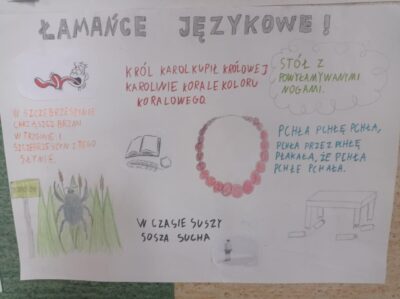 ŁAMAŃCE JĘZYKOWE!
KRÓL KAROL KUPIŁ KRÓLOWEJ
KAROLINIE KORALE KOLORU
KORALOWEGO.
STÓŁ Z
POWYŁAMYWANYMI
NOGAMI.
W SZCZEBRZESZYNIE
CHRZĄSZCZ BRZMI
W TRZCINIE I
SZCZEBRZESZYN Z TEGO
SŁYNIE.
PCHŁA PCHŁĘ PCHŁA,
PCHŁA PRZEZ PCHŁĘ
PŁAKAŁA, ŻE PCHŁA
PCHŁĘ PCHAŁA.
W CZASIE SUSZY
SOSZA SUCHA